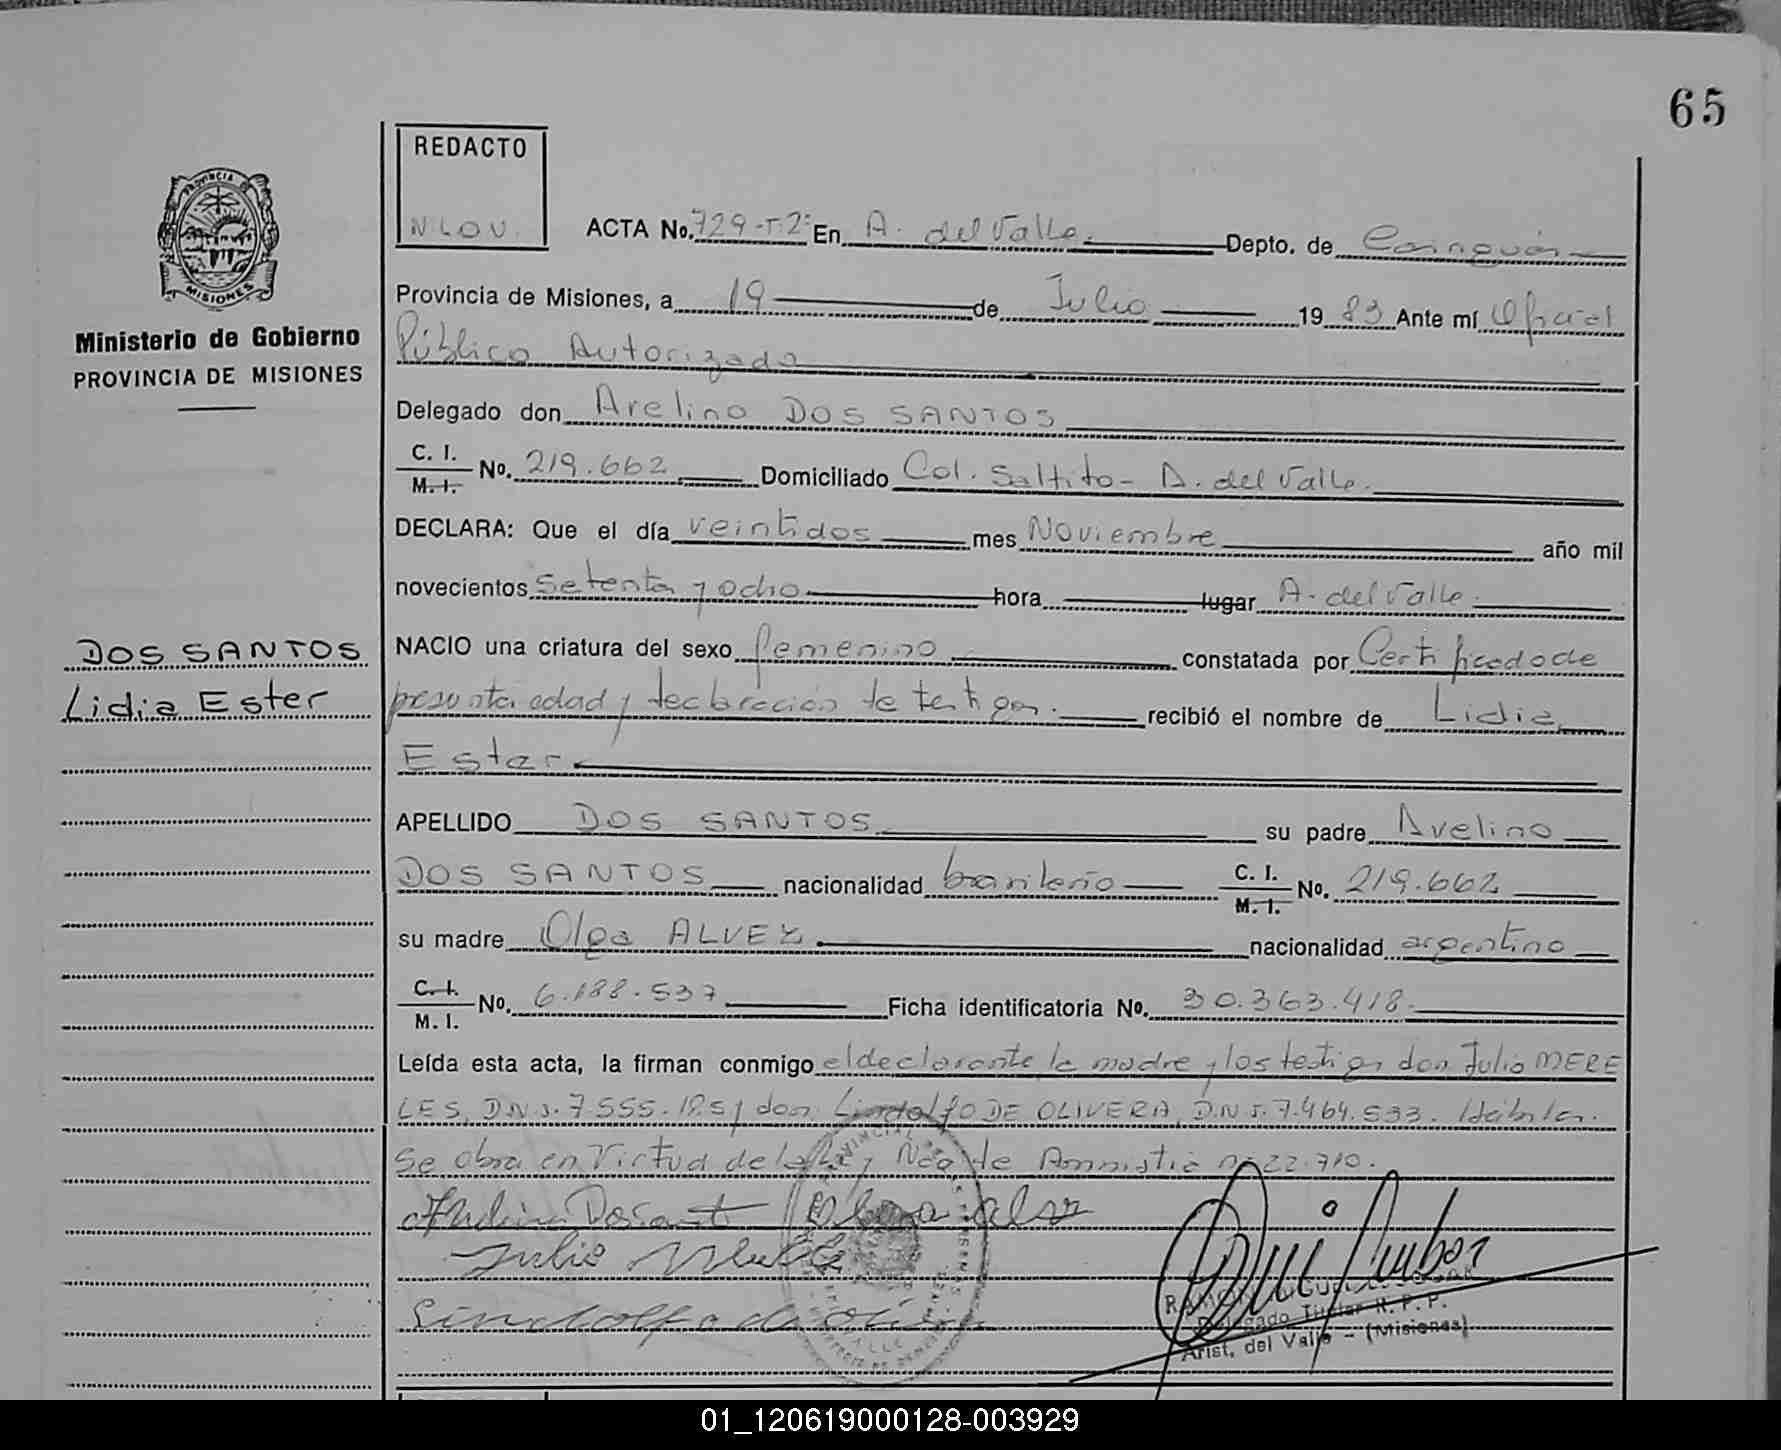 65
REDACTO
N.L.O.V.
PROVINCIA DE
MISIONES
Ministerio de Gobierno
PROVINCIA DE MISIONES
ACTA No. 729-T.2º En A. del Valle. Depto. de Cainguás
Provincia de Misiones, a 19 de Julio 1983 Ante mí Oficial
Público Autorizado
Delegado don Avelino DOS SANTOS
C. I.
M. I. No. 219.662 Domiciliado Col. Saltito - A. del Valle.
DECLARA: Que el día veintidos mes Noviembre año mil
novecientos setenta y ocho hora lugar A. del Valle.
DOS SANTOS
Lidia Ester
NACIO una criatura del sexo femenino constatada por Certificado de
presunta edad y declaración de testigos. recibió el nombre de Lidia
Ester
APELLIDO DOS SANTOS su padre Avelino
DOS SANTOS nacionalidad brasileño C. I.
M. I. No. 219.662
su madre Olga ALVEZ nacionalidad argentino
C. I.
M. I. No. 6.188.537 Ficha identificatoria No. 30.363.418.
Leída esta acta, la firman conmigo el declarante, la madre y los testigos don Julio MERE
LES, D.N.I. 7.555.185 y don Lindolfo DE OLIVERA, D.N.I. 7.464.533. Hábiles.
Se obra en Virtud de la Ley Nac. de Amnistia nº 22.710.
Julio
Delegado Titular R. P. P.
Arist. del Valle - (Misiones)
01_120619000128-003929